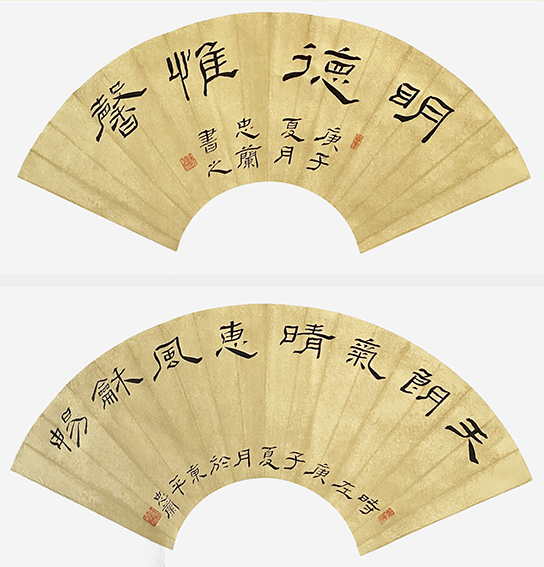 明德惟馨
庚子
夏月
忠蘭
書之
天朗氣晴惠風龢暢
時在庚子夏月於東平忠蘭